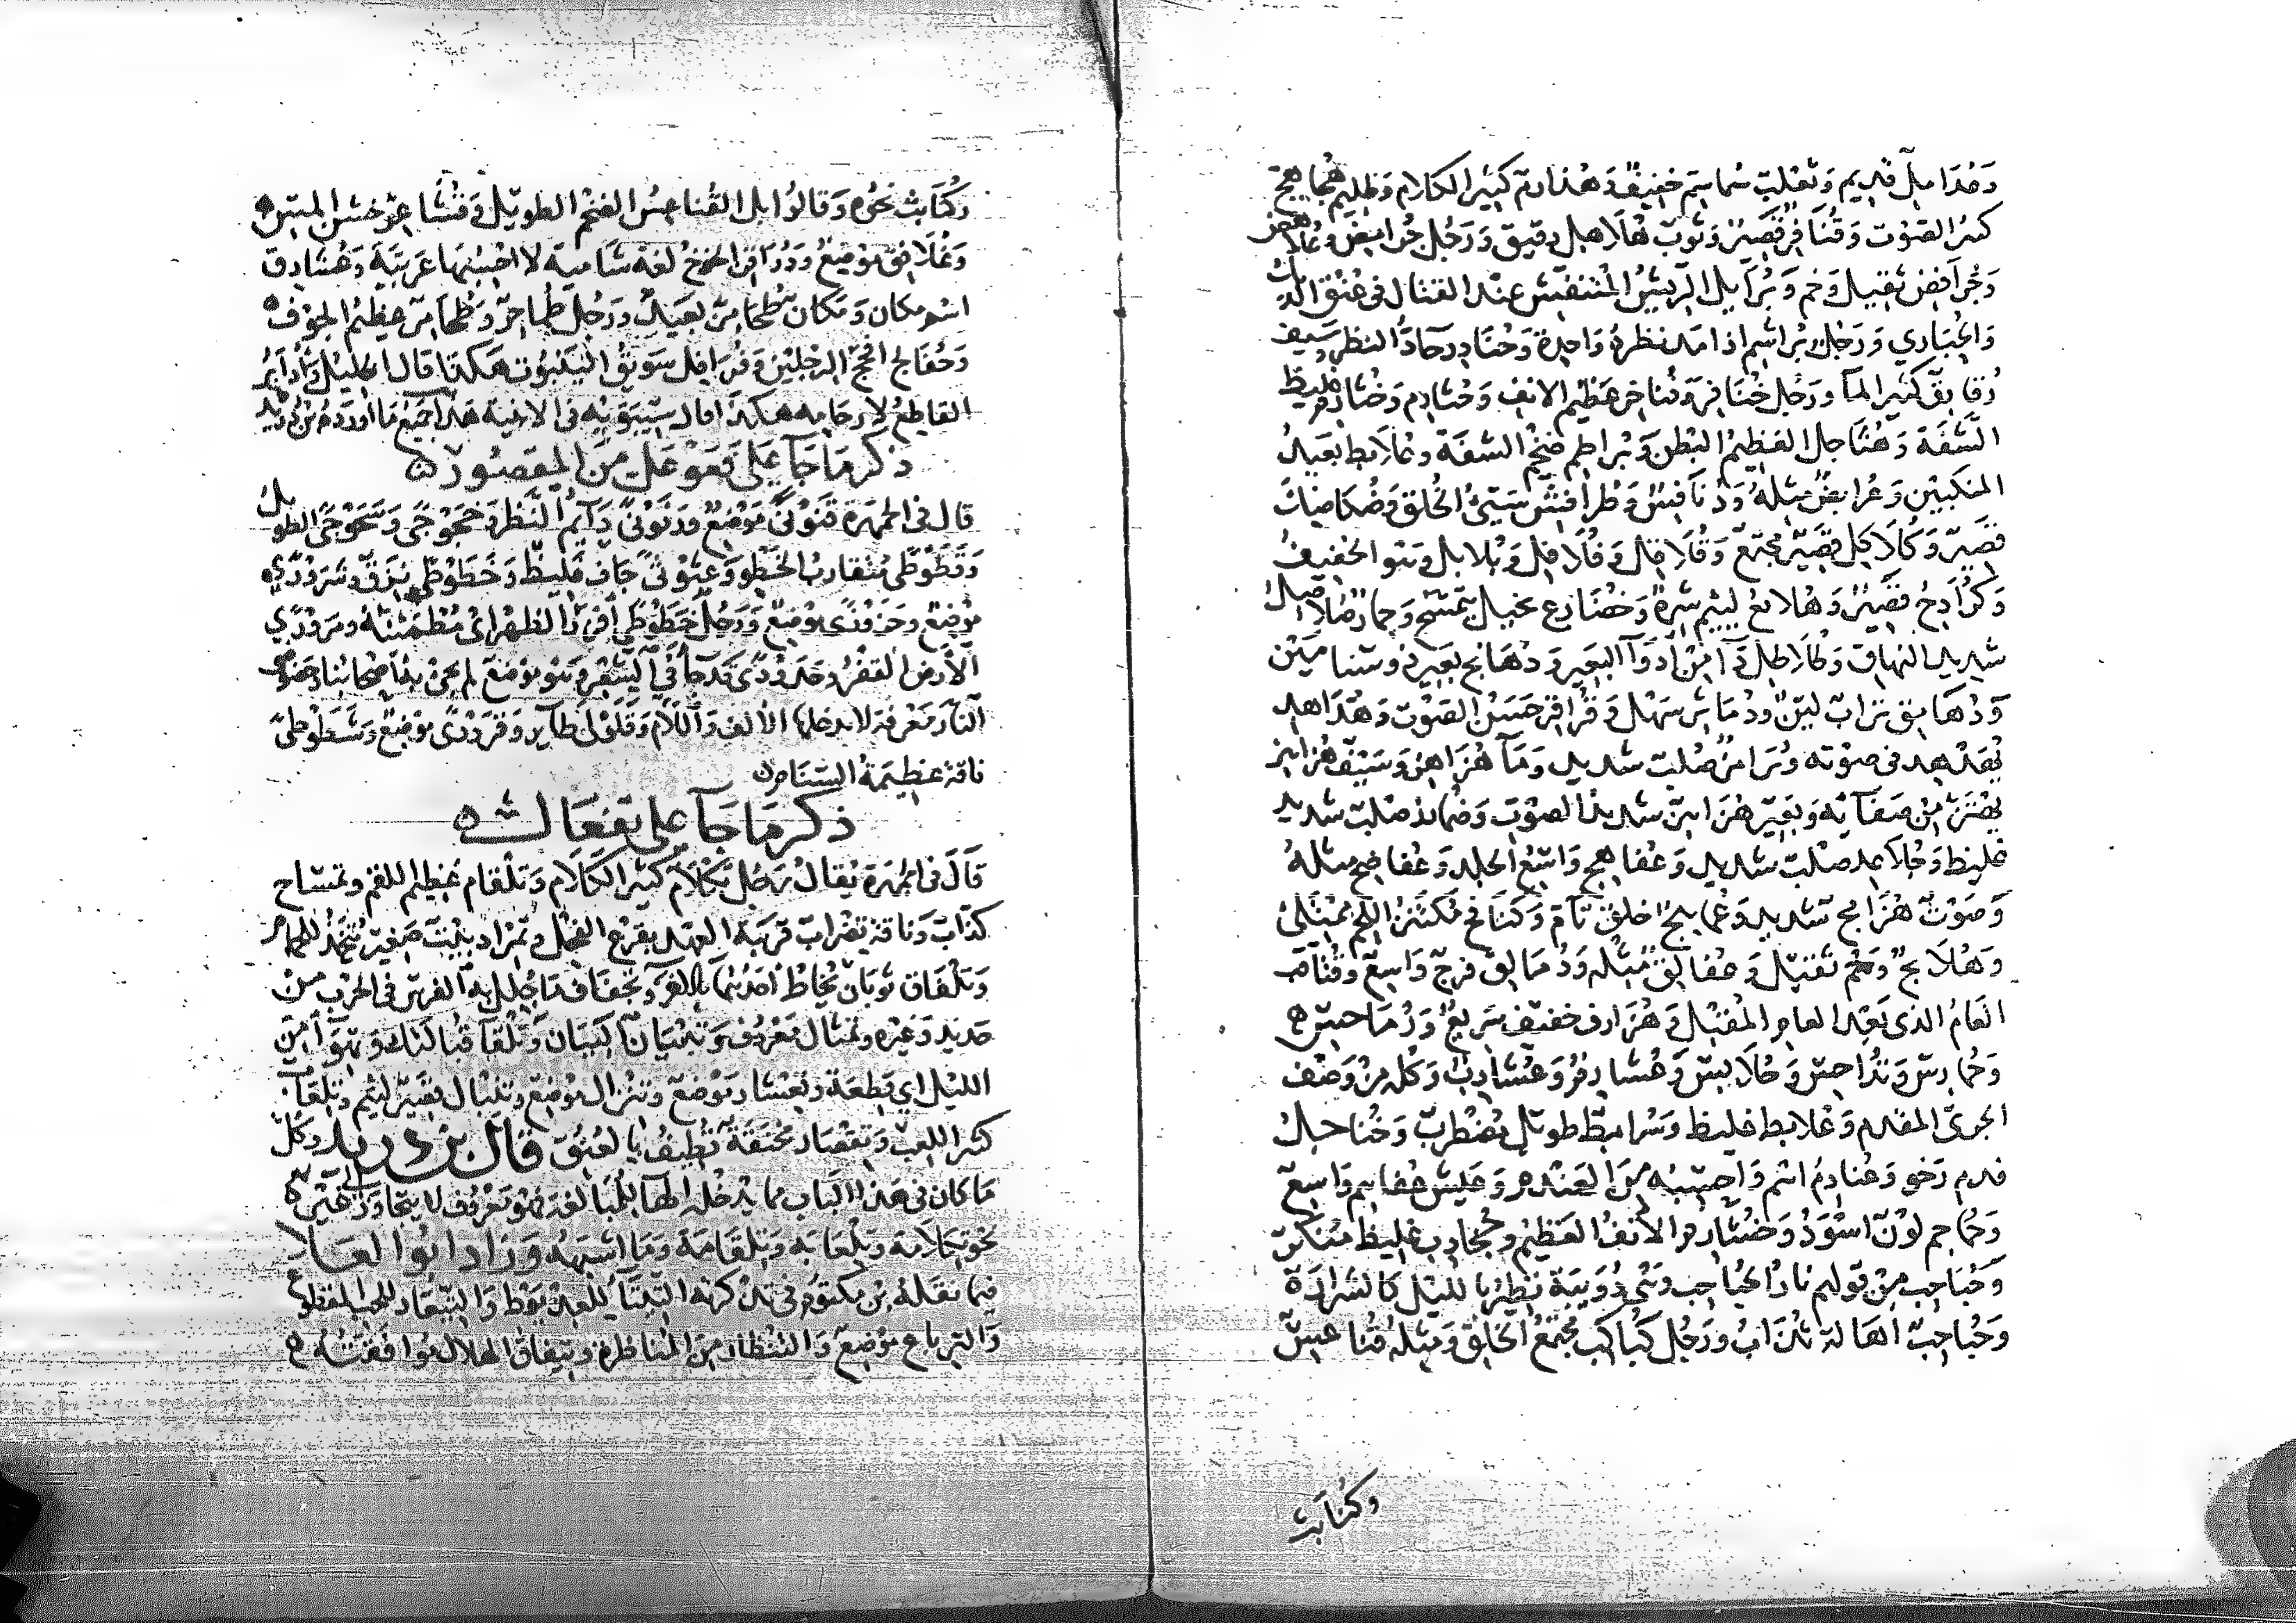 وعُدَامِل قديم وثعلب سُماسِم خفيف وهُذارم كثير الكلام وظليم هُجاهج
كثير الصوت وقُنافر قصير وثوب هُلاهل رقيق ورجل جُرامض وعُلاهض
وجُرافض ثقيل وخم وبُرايل الريش المتنفش عند القتال في عنق الديك
والحُبارى ورجل بُراشم اذا مد نظره واحدّه وحُنادر حادّ النظر وسيف
رُقارق كثير الماء ورجل خُنافر وفُناخر عظيم الانف وحُثارم وخُثارم غليظ
الشفة وعُثاجل العظيم البطن وبُراطم ضخم الشفة وعُلابط بعيد
المنكبين وعُرابض مثله ودُنافس وطُرافش سيئ الخلق وضُكاضك
قصير وكُلاكل قصير مجتمع وقُلاقل وفُلافل وبُلابل وهو الخفيف
وكُرادح قصير وهُلابع لئيم شره وخُضارع بخيل يتسمح وحمار صُلاصل
شديد النهاق وكُلاكل داء من ادواء البعير ودُهانج بعير ذو سنامين
ودُهامق تراب لين ودُماثر سهل وقُراقر حسن الصوت وهُداهد
يُهدهد في صوته وتُرامز صُلب شديد وماء هُزاهز وسيف هُزاهز
يهتز من صفائه وبعير هُزاهز شديد الصوت وضُمارز صلب شديد
غليظ وجُلاعد صلب شديد وعُفاهج واسع الجلد وعُفاضج مثله
وصوت هُزامج شديد وعُماهج خلق تام وكُنافج مكتنز اللحم ممتلئ
وهُلابج وخم ثقيل وعُفالق مثله ودُمالق فرج واسع وقُناقب
العام الذي بعد العام المقبل وهُزارف خفيف سريع ودُماحس
وحُمارس وتُداحس وحُلابس وعُشارم وعُشارب وكله من وصف
الجريّ المقدم وعُلابط غليظ وسُرامط طويل مضطرب وخُناجل
فدم رخو وعُنادم اسم واحسبه من العندم وعيش عُفاهم واسع
وحُماحم لون اسود وخُشارم الانف العظيم وجُخادب غليظ منكر
وحُباحب من قولهم نار الحُباحب وهي دُويبة تطير بالليل كالشرارة
وحُباحب الهالة تلزاب ورجل كُباكب مجتمع الخلق ومثله قُناعس
وكُنابث
وكُنابث نحوه وقالوا بل القُناعس الضخم الطويل وقُشاعر خشن المسّ
وعُلافق موضع ودُراقن الخوخ لغة شامية لا احسبها عربية وعُشادق
اسم مكان ومكان طحامر بعيد ورجل طُماحر وطُحامر عظيم الجوف
وحُفالج افحج الرجلين وفُرافل سويق الينبوت هكذا قال الخليل واُدابر
القاطع لارحامه هكذا قال سيبويه في الابنية هذا جميع ما اورده ابن دريد
ذكر ما جاء على فعوعل من المقصور
قال في الجمهرة قنَونى موضع ورنَونى دائم النظر وخجَوجى وشجَوجى الطويل
وقطَوطى متقارب الخطو وعثَوثى جاف غليظ وخطَوطى نزق وشرَورى
موضع وحزوزى موضع ورجل خطوطى افزر الظهر اي مطمئنه ومرورى
الارض القفر وحدودى قد جاء في الشعر وهو موضع لم يجئ به اصحابنا وحضوضى
النار معرفة لا يدخلها الالف واللام وقلولى طائر وقرورى موضع وشطوطى
ناقة عظيمة السنام
ذكر ما جاء على تفعال
قال في الجمهرة يقال رجل تِكلام كثير الكلام وتِلقام عظيم اللقم وتمساح
كذاب وناقة تضراب قريبة العهد بقرع الفحل وتمراد بيت صغير يتخذ للحمام
وتلفاق ثوبان يخاط احدهما بالآخر وتجفاف ما جلل به الفرس في الحرب من
حديد وغيره وتمثال معروف وتبيان البيان وتلقاء قبالتك وتهواء من
الليل اي قطعة وتعشار موضع وتنزال موضع وتنبال قصير لئيم وتلعاب
كثير اللعب وتقصار مخنقة تطيف بالعنق قال بن دريد وكل
ما كان في هذا الباب مما يدخله الهاء للمبالغة فهو معروف لا يتجاوز الى غيره
نحو تكلامة وتلعابة وتلقامة وما اشبهه وزاد ابوا العلا
فيما نقله بن مكتوم في تذكرته التيتاء للعذيوط والتيغار للحب المقطوع
والترباع موضع والتنظار من المناظرة وتيفاق الهلال موافقته